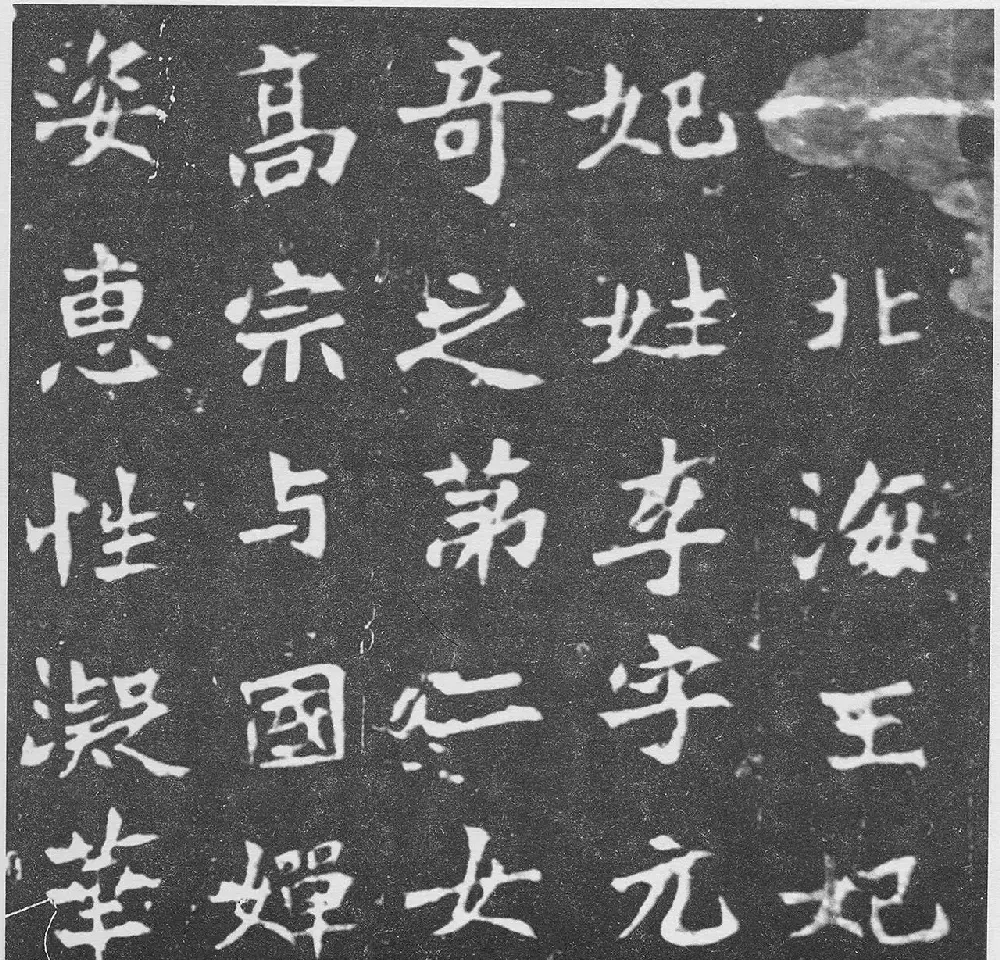 北海王妃
妃姓李字元
竒之第二女
高宗与國嬋
姿恵性凝華